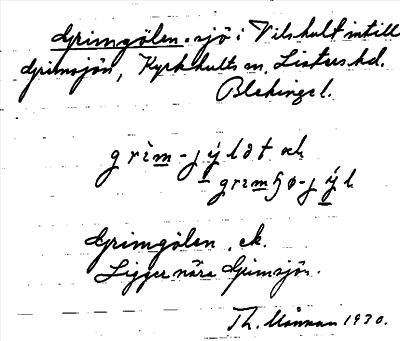 Grimgölen. sjö i Vilshult intill
Grimsjön, Kyrkhults sn. Listers hd.
Blekinge l.
grìm-jýlət och
Grimgölen, ek.
Ligger nära Grimsjön.
Th. Månsson 1930.